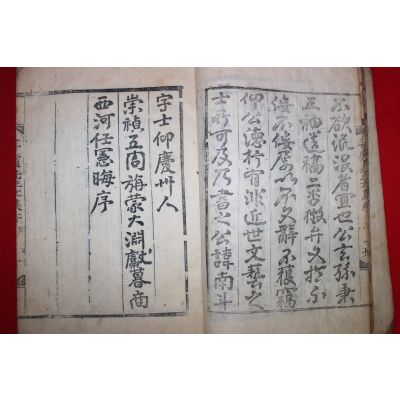 不欲泯沒者宜也公玄孫秉
五袖遺稿二示徵弁文指余
倭不倭屢以不文辭不獲竊
仰公德於有非近世文藝之
士所可及乃書之公諱南斗
字士仰慶州人
崇禎五周旃蒙大淵獻暮商
西河任憲晦序